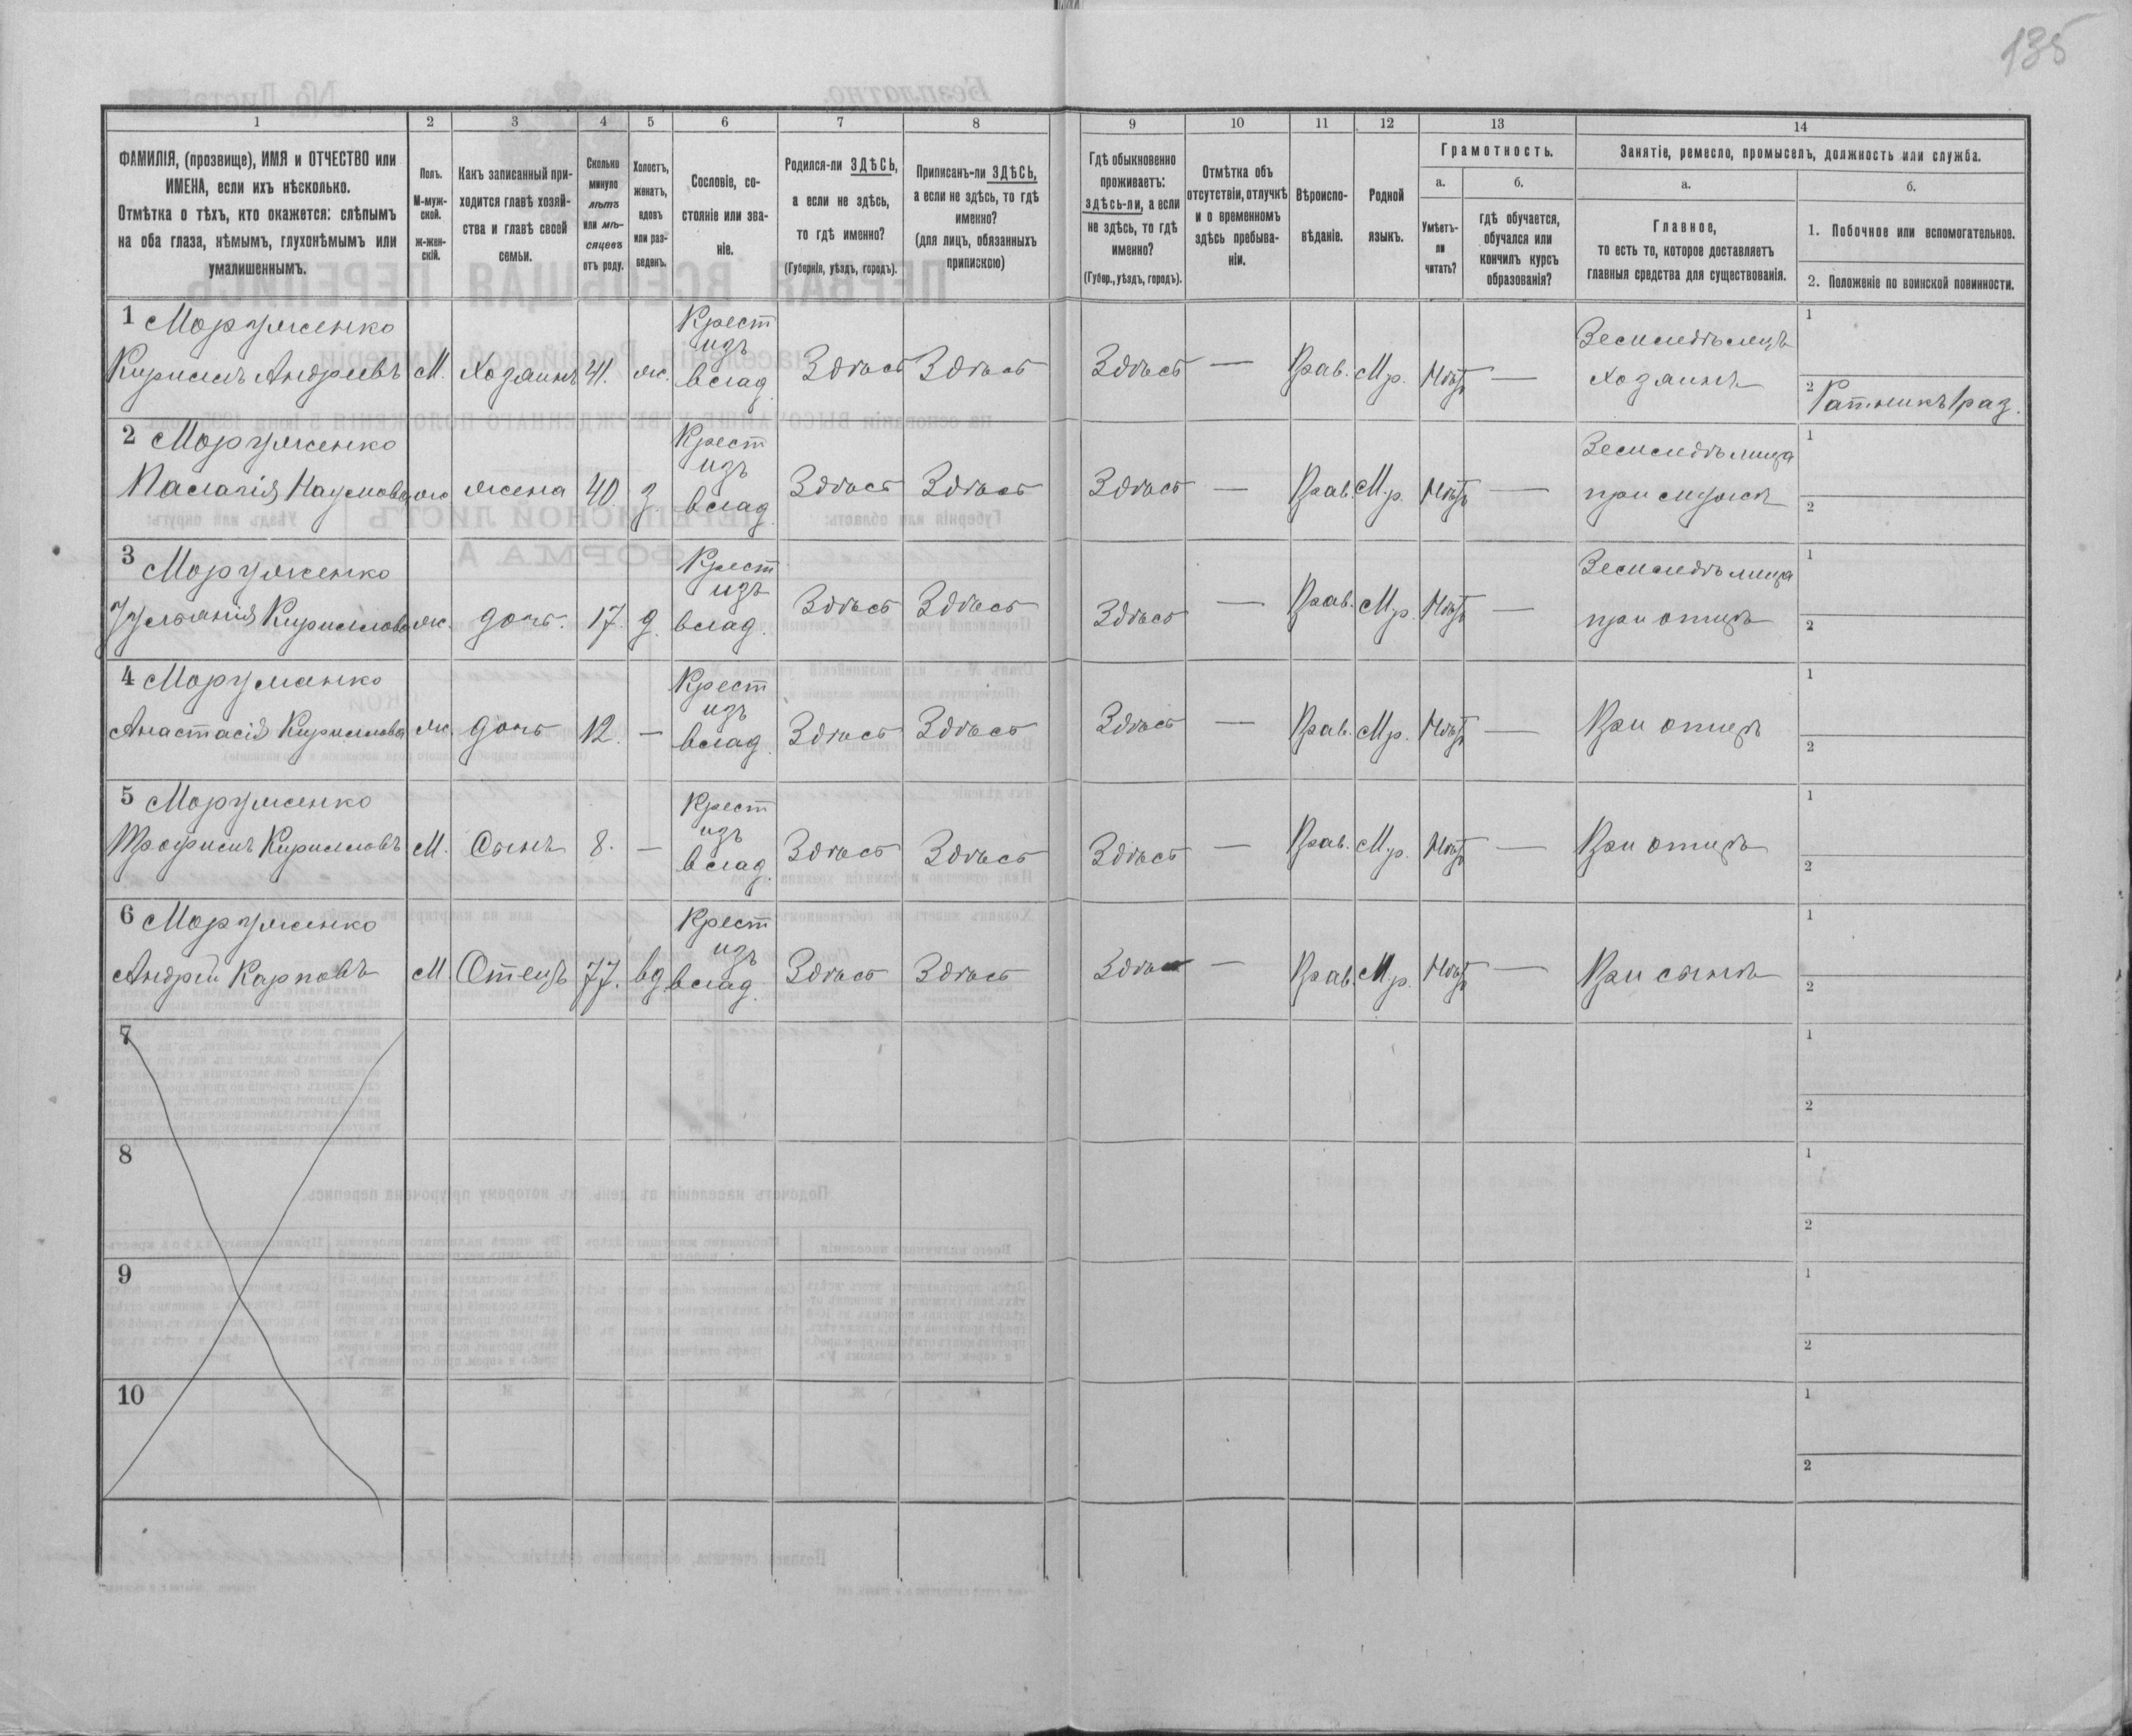 135
1 2 3 4 5 6 7 8 9 10 11 12 13 14
ФАМИЛІЯ, (прозвище), ИМЯ и ОТЧЕСТВО или
ИМЕНА, если ихъ нѣсколько.
Отмѣтка о тѣхъ, кто окажется: слѣпымъ
на оба глаза, нѣмымъ, глухонѣмымъ или
умалишеннымъ.
Полъ.
М-муж-
ской.
ж-жен-
скій.
Какъ записанный при-
ходится главѣ хозяй-
ства и главѣ своей
семьи.
Сколько
минуло
лѣтъ
или мѣ-
сяцевъ
отъ роду.
Холостъ,
женатъ,
вдовъ
или раз-
веденъ.
Сословіе, со-
стояніе или зва-
ніе.
Родился-ли ЗДѢСЬ,
а если не здѣсь,
то гдѣ именно?
(Губернія, уѣздъ, городъ).
Приписанъ-ли ЗДѢСЬ,
а если не здѣсь, то гдѣ
именно?
(для лицъ, обязанныхъ
припискою)
Гдѣ обыкновенно
проживаетъ:
здѣсь-ли, а если
не здѣсь, то гдѣ
именно?
(Губер., уѣздъ, городъ).
Отмѣтка объ
отсутствіи, отлучкѣ
и о временномъ
здѣсь пребыва-
ніи.
Вѣроиспо-
вѣданіе.
Родной
языкъ.
Грамотность.
а.
Умѣетъ-
ли
читать?
б.
гдѣ обучается,
обучался или
кончилъ курсъ
образованія?
Занятіе, ремесло, промыселъ, должность или служба.
а.
Главное,
то есть то, которое доставляетъ
главныя средства для существованія.
б.
1. Побочное или вспомогательное.
2. Положеніе по воинской повинности.
1 Моруженко Крест Земледѣлецъ 1
Кириллъ Андреевъ М. Хозяинъ 41. ж. изъ Здѣсь Здѣсь Здѣсь — Прав. М.р. Нѣтъ — Хозяинъ
влад. 2 Ратникъ 1 раз.
2 Моруженко Крест Земледѣлица 1
Палагія Наумова ж жена 40. з изъ Здѣсь Здѣсь Здѣсь — Прав. М.р. Нѣтъ — при мужѣ
влад. 2
3 Моруженко Крест Земледѣлица 1
Ульянія Кириллова ж. дочь. 17. д. изъ Здѣсь Здѣсь Здѣсь — Прав. М.р. Нѣтъ — при отцѣ
влад. 2
4 Моруженко Крест 1
Анастасія Кириллова ж. дочь 12. — изъ Здѣсь Здѣсь Здѣсь — Прав. М.р. Нѣтъ — При отцѣ
влад. 2
5 Моруженко Крест 1
Трофимъ Кирилловъ М. Сынъ 8. — изъ Здѣсь Здѣсь Здѣсь — Прав. М.р. Нѣтъ — При отцѣ
влад. 2
6 Моруженко Крест 1
Андрей Карповъ М. Отецъ 77. вд изъ Здѣсь Здѣсь Здѣсь — Прав. М.р. Нѣтъ — При сынѣ
влад. 2
7 1
2
8 1
2
9 1
2
10 1
2